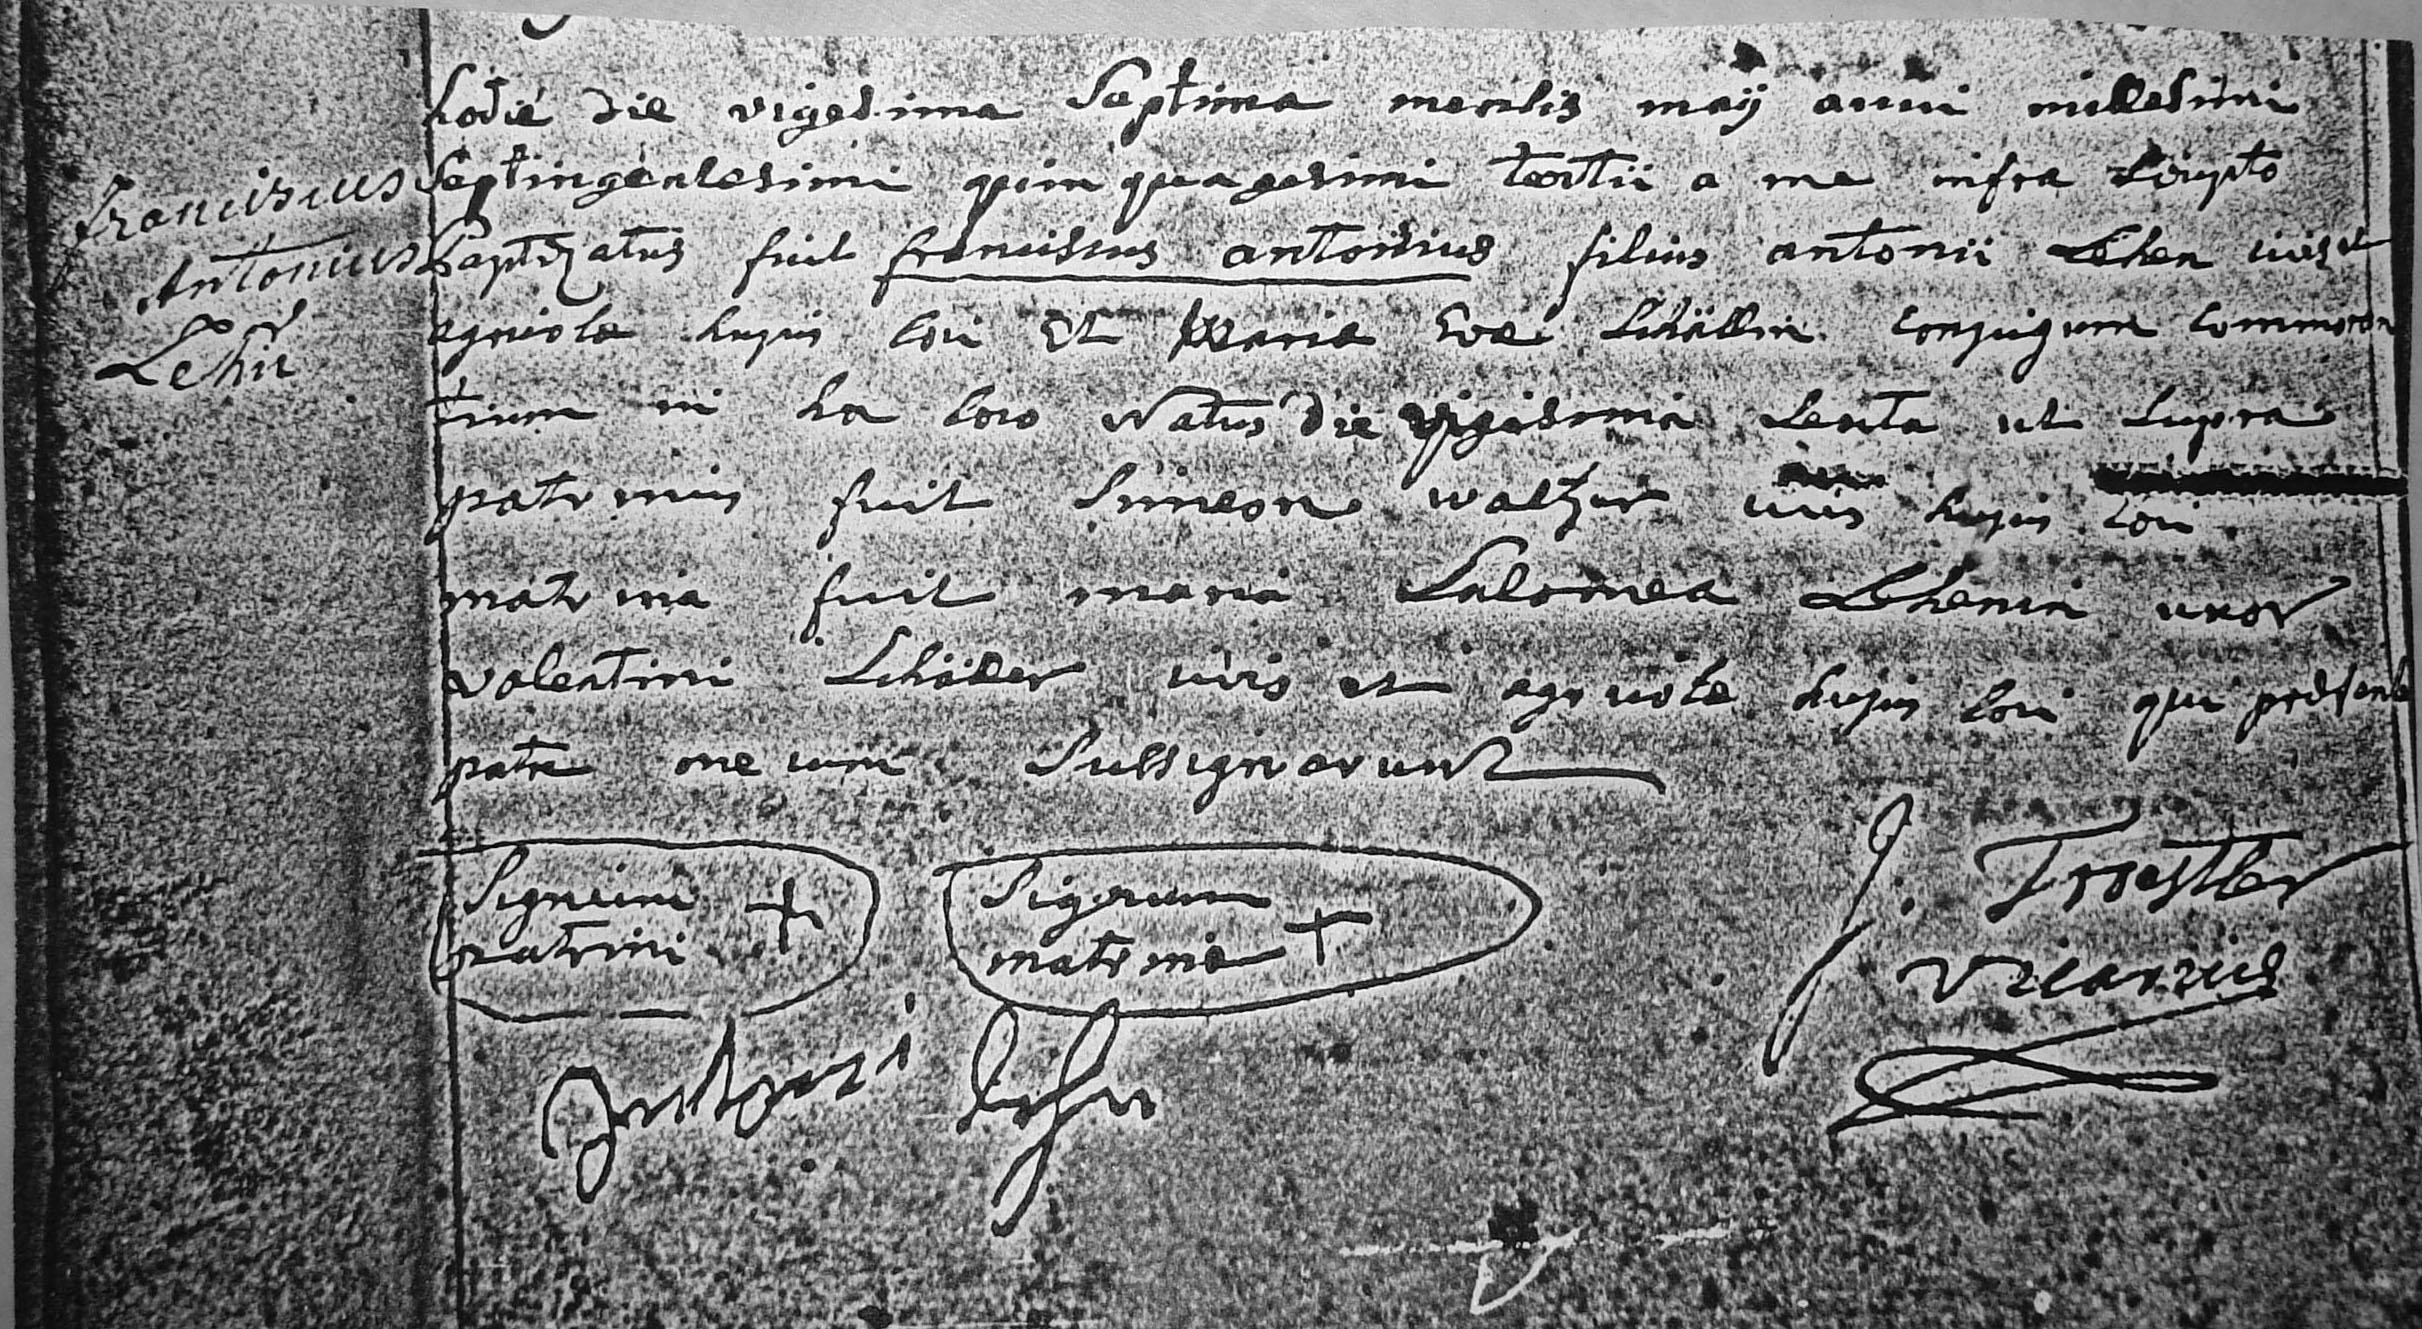 Francisius
Antonius
Lehn
hodie die vigesima Septima mensis maÿ anni millesimi
Septingentesimi quinquagesimi tertii a me infra Scripto
baptizatus fuit franciscus antonius filius antonii Lehen civis et
agricole hujus loci et Maria Eva Schällin conjugum commoran
tium in ho loco Natus die vigesima Sexta ut Supra
patrinus fuit Simeon waltzer civis hujus loci
matrina fuit maria Salomea Lehenin uxor
valentini Schäller civis et agricole hujus loci qui presente
patre mecum Subsignarunt
Signum
patrini +
Signum
matrine +
J. Troestler
vicarius
Antoni Lehn